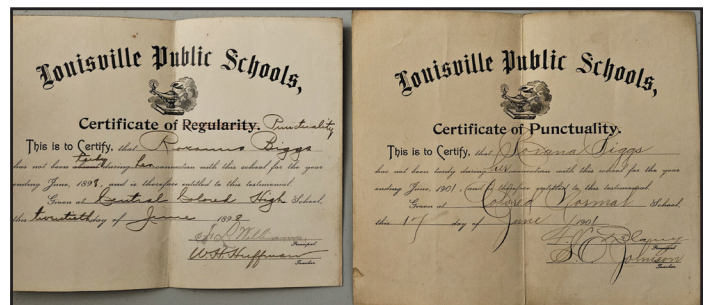 Louisville Public Schools,
Certificate of Regularity. Punctuality
This is to Certify, that Roxanna Biggs
has not been absent tardy during her connection with this school for the year
ending June, 1898, and is therefore entitled to this testimonial.
Given at Central Colored High School,
this twentieth day of June 1898
Williams
Principal
W. H. Huffman
Teacher
Louisville Public Schools,
Certificate of Punctuality.
This is to Certify, that Roxana Biggs
has not been tardy during her connection with this school for the year
ending June, 1901, and is therefore entitled to this testimonial.
Given at Colored Normal School,
this 17 day of June 1901
Principal
Johnson
Teacher